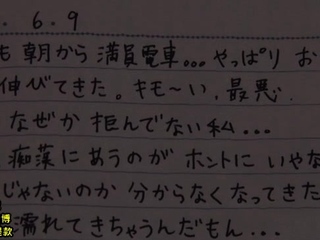 . 6.9
も 朝から 満員電車... やっぱり お
伸びてきた。キモ〜い、最悪
なぜか 拒んでない私...
痴漢にあうのが ホントに いやな
じゃないのか 分からなくなってきた
濡れてきちゃうんだもん...
博
款